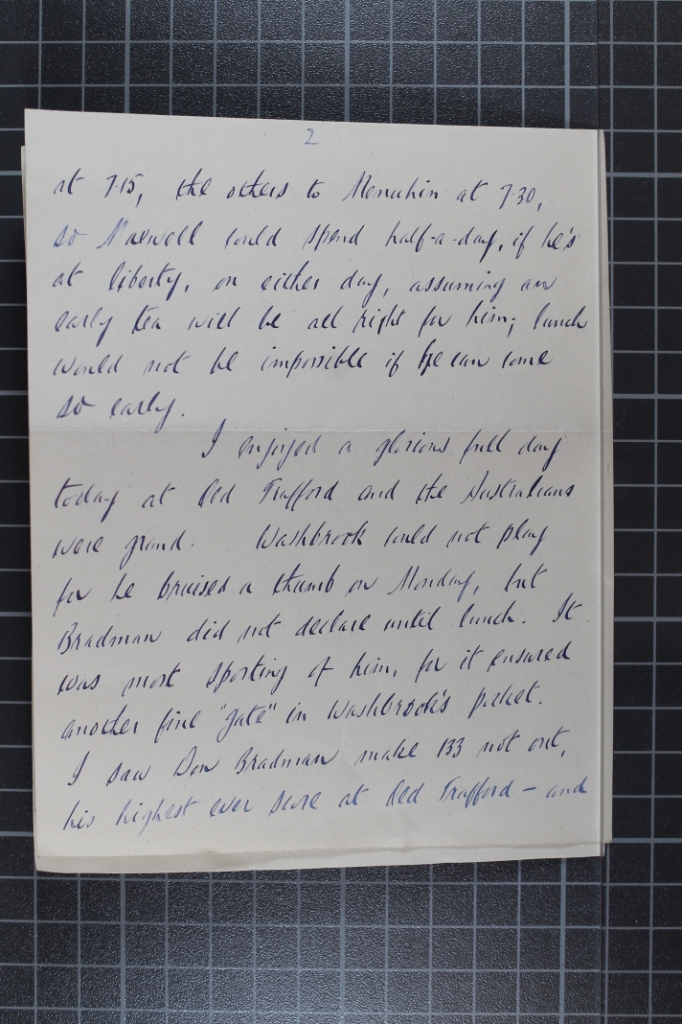 2
at 7.15, the others to Menuhin at 7.30,
so Maxwell could spend half-a-day, if he's
at liberty, on either day, assuming an
early tea will be all right for him; lunch
would not be impossible if he can come
so early.
I enjoyed a glorious full day
today at Old Trafford and the Australians
were grand. Washbrook could not play
for he bruised a thumb on Monday, but
Bradman did not declare until lunch. It
was most sporting of him, for it ensured
another fine "gate" in Washbrook's packet.
I saw Don Bradman make 133 not out,
his highest ever score at Old Trafford – and